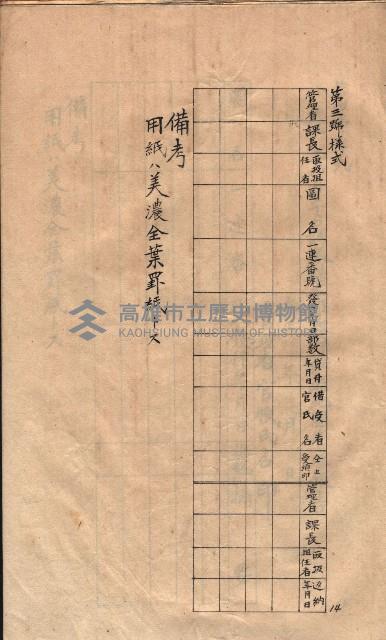 第三號樣式
管理者
課長
取扱担任者
圖名
一連番號
發行年月日
部數
貸付年月日
借受者官氏名
仝上受領印
管理者
課長
取扱担任者
返納年月日
備考
用紙ハ美濃全葉罫紙トス
14
高雄市立歷史博物館
KAOHSIUNG MUSEUM OF HISTORY